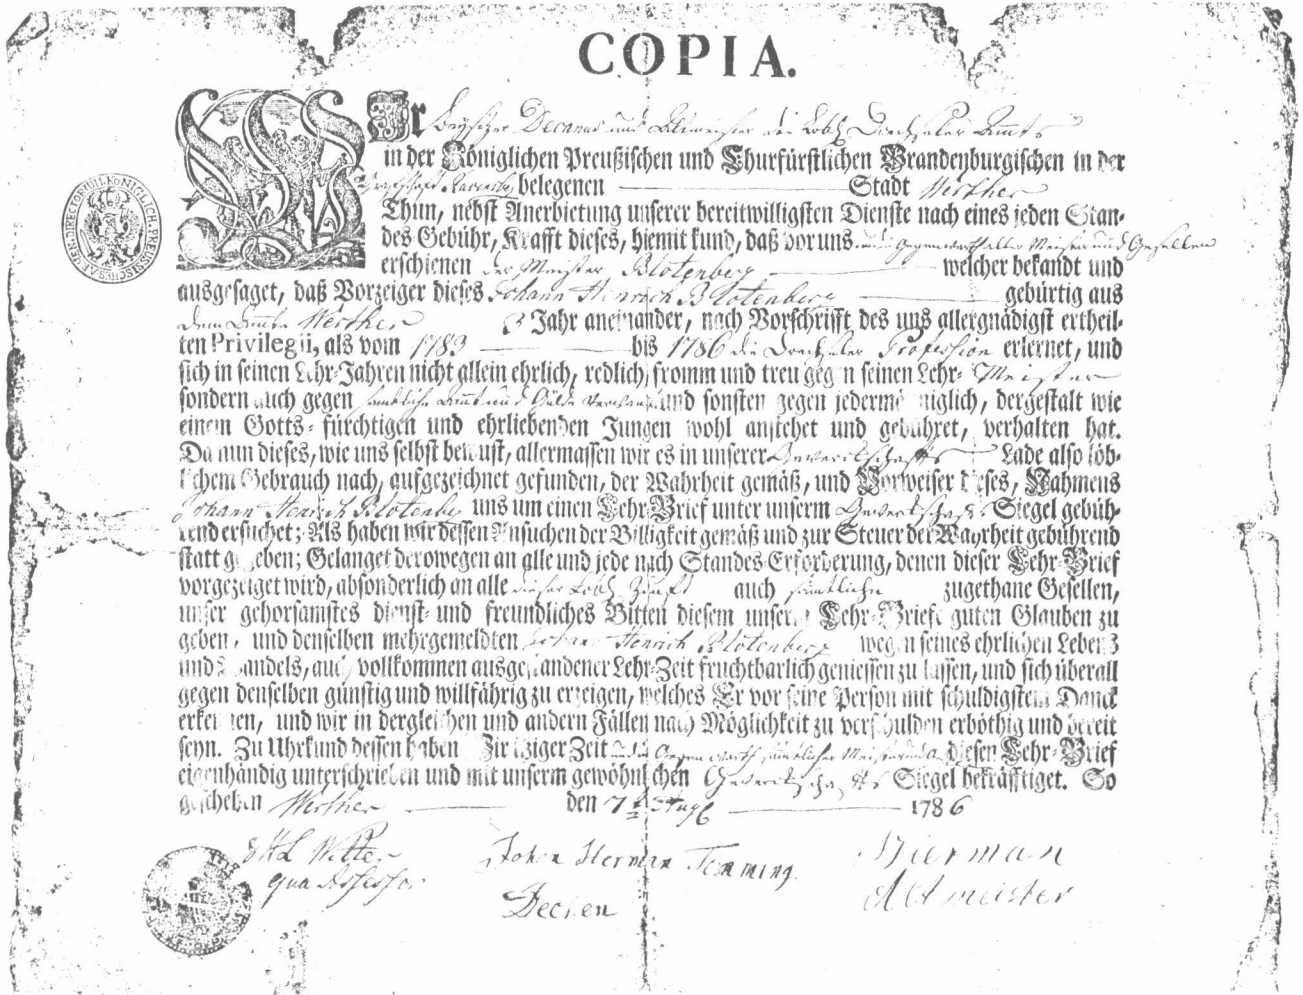 COPIA.
Wir Beysitzer Decanus und Altmeister des Löbl. Drechseler Amts
in der Königlichen Preußischen und Churfürstlichen Brandenburgischen in der
Graffschafft Ravensberg belegenen Stadt Werther
Thun, nebst Anerbietung unserer bereitwilligsten Dienste nach eines jeden Stan-
des Gebühr, Krafft dieses, hiemit kund, daß vor uns und Gegenwarth aller Meister und Gesellen
erschienen der Meister Blotenberg welcher bekandt und
ausgesaget, daß Vorzeiger dieses Johann Henrich Blotenberg gebürtig aus
dem Amte Werther 3 Jahr aneinander, nach Vorschrifft des uns allergnädigst ertheil-
ten Privilegii, als vom 1783 bis 1786 die Drechseler Profession erlernet, und
sich in seinen Lehr-Jahren nicht allein ehrlich, redlich, fromm und treu gegen seinen Lehr- Meister
sondern auch gegen sämbtliche Amt und Gülde und sonsten gegen jedermänniglich, dergestalt wie
einem Gotts-fürchtigen und ehrliebenden Jungen wohl anstehet und gebühret, verhalten hat.
Da nun dieses, wie uns selbst bewust, allermassen wir es in unserer Gewerckschaffts Lade also löb-
lichem Gebrauch nach, aufgezeichnet gefunden, der Wahrheit gemäß, und Vorweiser dieses, Nahmens
Johann Henrich Blotenberg uns um einen Lehr-Brief unter unserm Gewerckschaffts Siegel gebüh-
rend ersuchet; Als haben wir dessen Ansuchen der Billigkeit gemäß und zur Steuer der Warheit gebührend
statt gegeben; Gelanget derowegen an alle und jede nach Standes-Erforderung, denen dieser Lehr-Brief
vorgezeiget wird, absonderlich an alle dieser Löbl. Zunft auch sämtliche zugethane Gesellen,
unser gehorsamstes dienst- und freundliches Bitten diesem unserm Lehr-Briefe guten Glauben zu
geben, und denselben mehrgemeldten Johann Henrich Blotenberg wegen seines ehrlichen Lebens
und Wandels, auch vollkommen ausgestandener Lehr-Zeit fruchtbarlich geniessen zu lassen, und sich überall
gegen denselben günstig und willfährig zu erzeigen, welches Er vor seine Person mit schuldigstem Danck
erkennen, und wir in dergleichen und andern Fällen nach Möglichkeit zu verschulden erböthig und bereit
seyn. Zu Uhrkund dessen haben Wir itziger Zeit Gegenwarth sämbtlicher Meister diesen Lehr-Brief
eigenhändig unterschrieben und mit unserm gewöhnlichen Gewerckschaffts Siegel bekräfftiget. So
geschehen Werther den 7t Aug 1786
Witter Johan Herman Temming Bierman
qua Assessor Dechen Altmeister